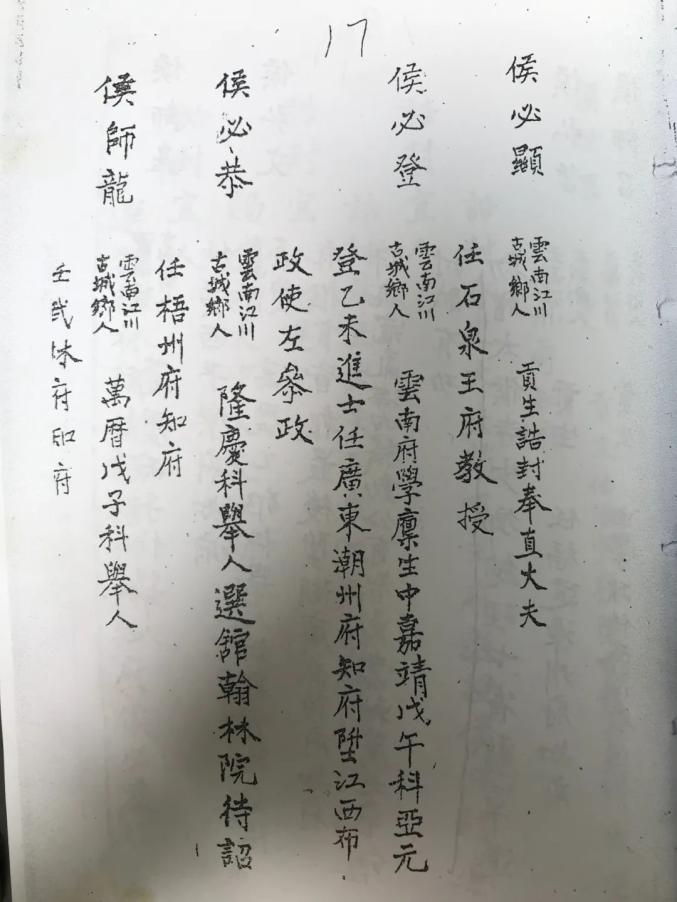 17
侯必顯 雲南江川古城鄉人 貢生誥封奉直大夫
任石泉王府教授
侯必登 雲南江川古城鄉人 雲南府學廪生中嘉靖戊午科亞元
登乙未進士任廣東潮州府知府陞江西布
政使左參政
侯必恭 雲南江川古城鄉人 隆慶科舉人選舘翰林院待詔
任梧州府知府
侯師龍 雲南江川古城鄉人 萬曆戊子科舉人
府知府